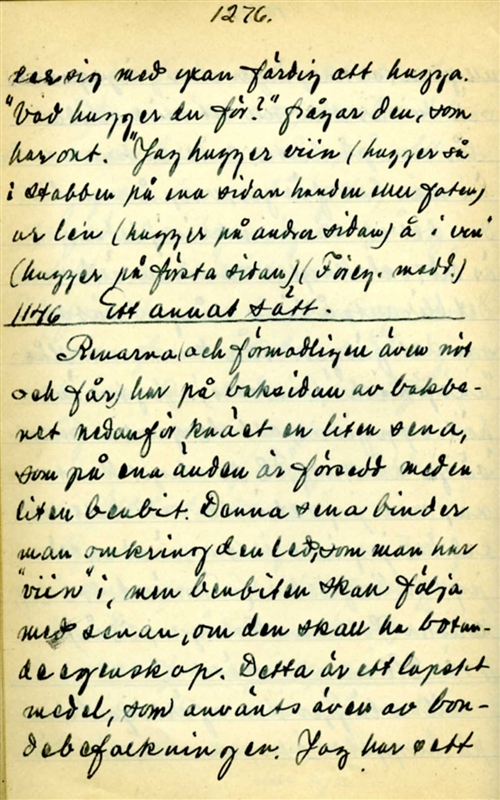 1276.
ler sig med yxan färdig att hugga.
"Vad hugger du för?" frågar den, som
har ont. "Jag hugger viin (hugger så
i stabben på ena sidan handen eller foten)
ur lein (hugger på andra sidan) å i vin"
(hugger på första sidan) (Föreg. medd.)
1146 Ett annat sätt.
Renarna (och förmodligen även nöt
och får) har på baksidan av bakbe-
net nedanför knäet en liten sena,
som på ena änden är försedd med en
liten benbit. Denna sena binder
man omkring den led, som man har
"viin" i, men benbiten skan följa
med senan, om den skall ha botan-
de egenskap. Detta är ett lapskt
medel, som använts även av bon-
debefolkningen. Jag har sett